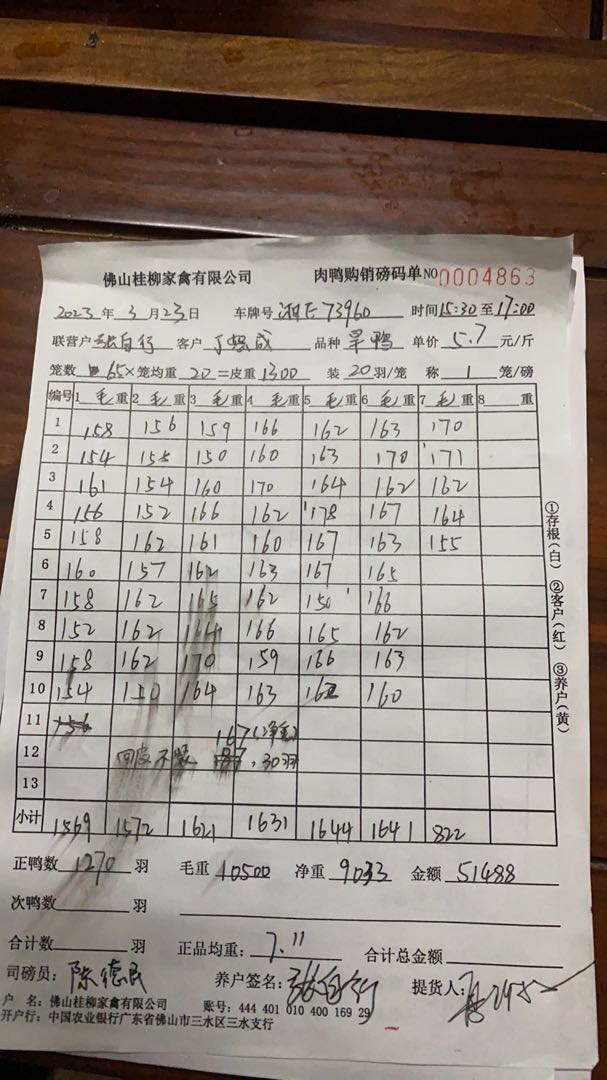 佛山桂柳家禽有限公司 肉鸭购销磅码单 NO 0004863
2023 年 3 月 23 日 车牌号 73960 时间 15:30 至 17:00
联营户 张自行 客户 品种 旱鸭 单价 5.7 元/斤
笼数 65 × 笼均重 20 = 皮重 1300 装 20 羽/笼 称 1 笼/磅
编号 1 毛 重 2 毛 重 3 毛 重 4 毛 重 5 毛 重 6 毛 重 7 毛 重 8 重
1 158 156 159 166 162 163 170
2 154 155 150 160 163 170 171
3 161 154 160 170 164 162 162
4 156 152 166 162 178 167 164
5 158 162 161 160 167 163 155
6 160 157 162 163 167 165
7 158 162 165 162 150 166
8 152 162 164 166 165 162
9 158 162 170 159 166 163
10 154 150 164 163 162 160
11 156 167(净重)
12 回家不装 , 30羽
13
小计 1569 1572 1621 1631 1644 1641 822
正鸭数 1270 羽 毛重 10500 净重 9033 金额 51488
次鸭数 羽
合计数 羽 正品均重: 7.11 合计总金额
司磅员: 陈德民 养户签名: 张自行 提货人:
户 名: 佛山桂柳家禽有限公司 账号: 444 401 010 400 169 29
开户行: 中国农业银行广东省佛山市三水区三水支行
①存根(白) ②客户(红) ③养户(黄)